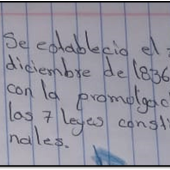 Se establecio el
diciembre de 1836
con la promolgac
las 7 leyes consti
nales.